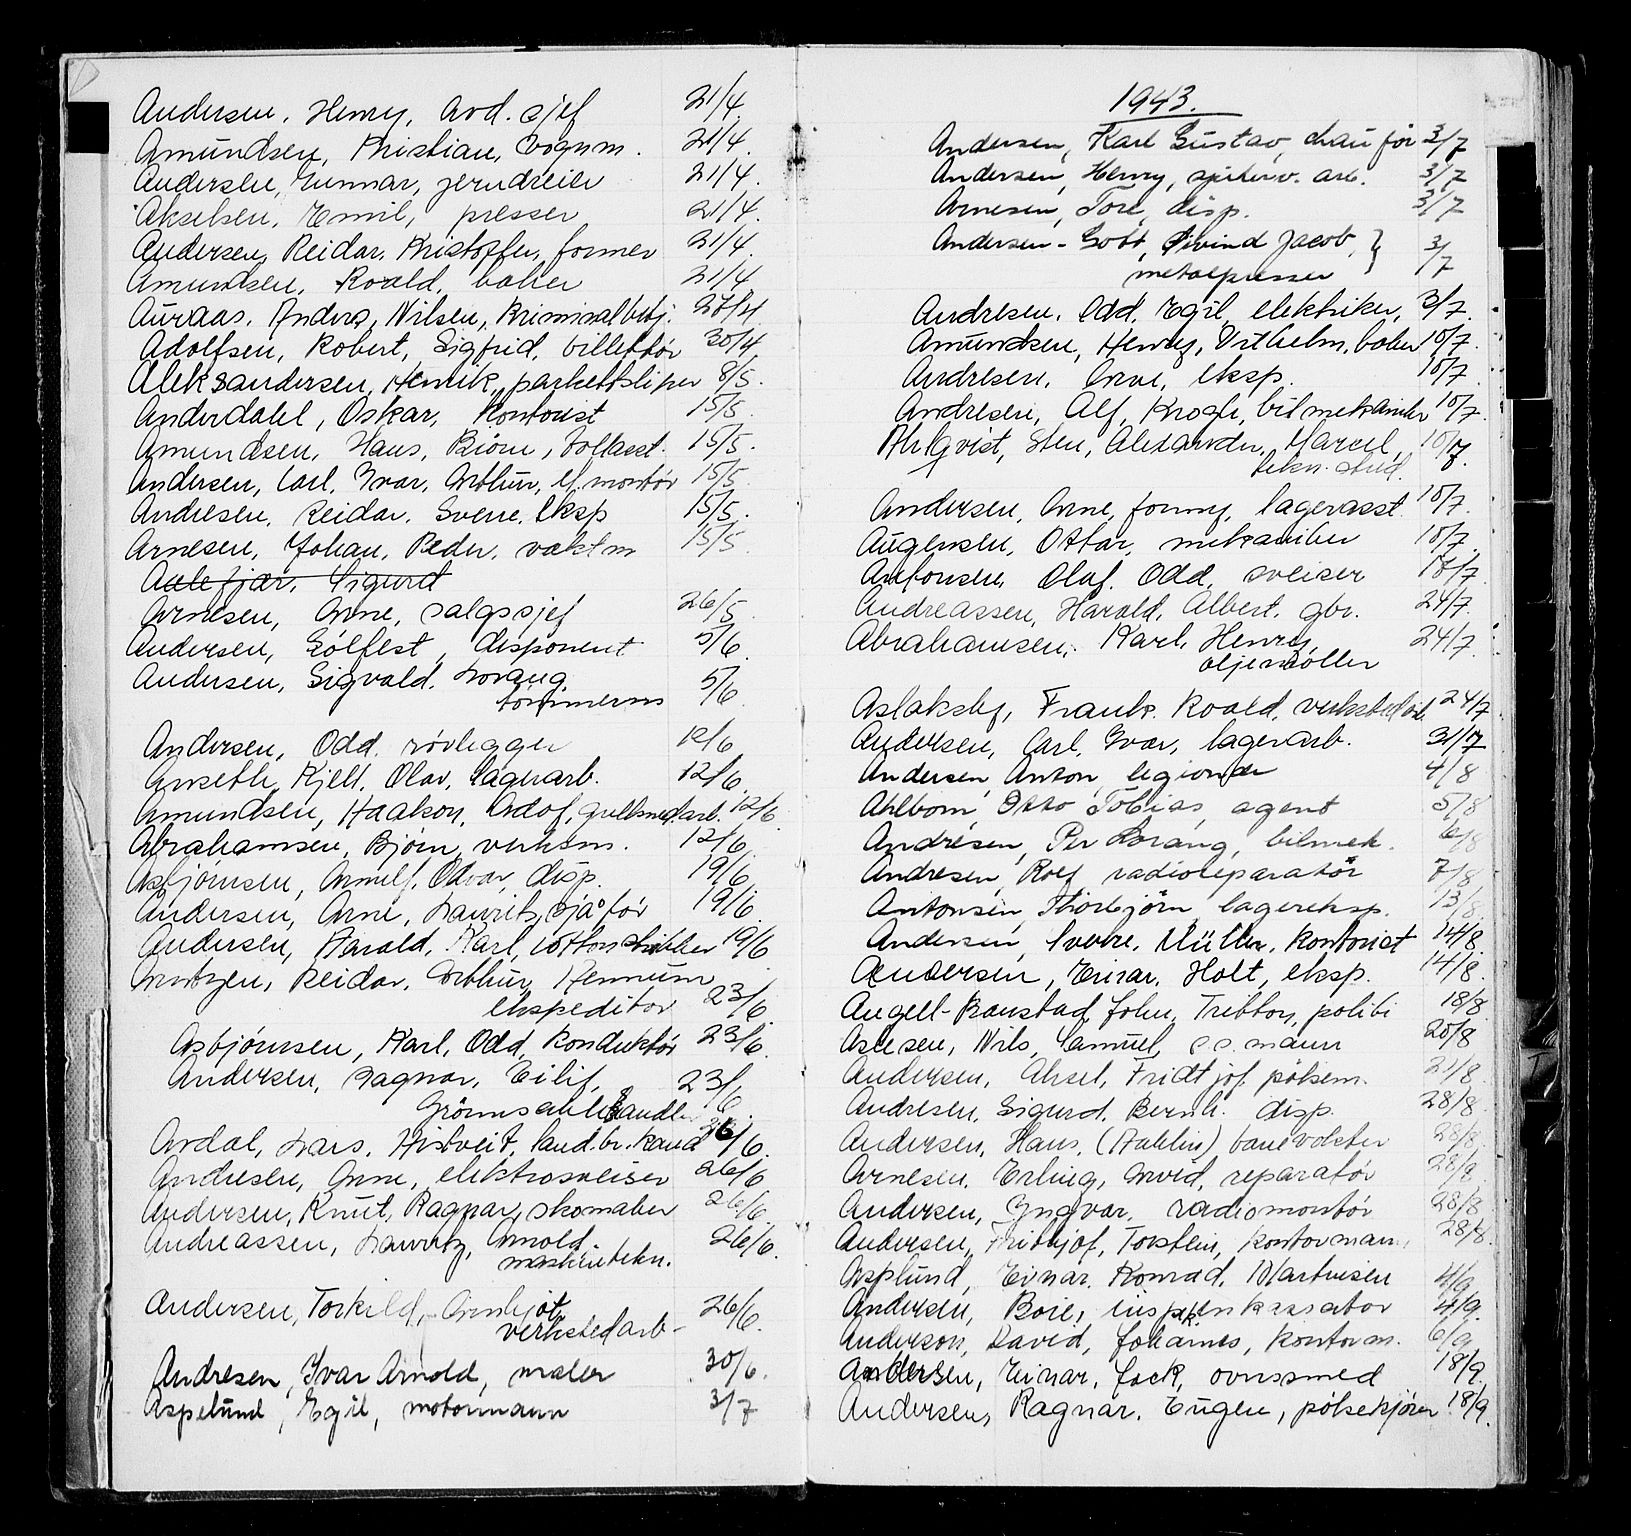 Andersen, Henry, Avd. sjef 21/4
Amundsen, Kristian, Vognm. 21/4.
Andersen, Gunnar, jerndreier 21/4.
Akselsen, Emil, presser 21/4.
Andersen, Reidar, Kristoffer, former 21/4
Amundsen, Roald, baker 21/4
Auraas, Anders, Nilsen, Kriminalbetj. 28/4
Adolfsen, Robert, Sigfrid, billettör 30/4
Aleksandersen, Henrik, parkettsliper 8/5.
Anderdahl, Oskar, Kontorist 15/5.
Amundsen, Hans, Björn, Tollasst. 15/5.
Andersen, Carl, Ivar, Arthur, el. montör 15/5
Andresen, Reidar, Sverre, Eksp 15/5.
Arnesen, Johan, Peder, vaktm 15/5
Aslefjær, Sigurd
Arnesen, Arne, salgssjef 26/5
Andersen, Gólfest, disponent 5/6
Andersen, Sigvald, Lorang
tömmerm 5/6
Andersen, Odd, rörlegger 12/6
Anseth, Kjell, Olav, lagerarb. 12/6.
Amundsen, Haakon, Adof, gullsmed.arb. 12/6
Abrahamsen, Björn, verksm. 12/6
Asbjörnsen, Arnulf, Odvar, disp. 19/6
Andersen, Arne, Lauritz, sjåför 19/6
Andersen, Harald, Karl, 19/6
Arntzen, Reidar, Arthur, Hennum
ekspeditör 23/6
Asbjörnsen, Karl, Odd, Konduktör 23/6.
Andersen, Ragnar, Eilif,
Grönnsakhandler 23/6
Ardal, Lars, Histveit, landbr. kand 26/6.
Andresen, Arne, elektrosveiser 26/6
Andersen, Knut, Ragnar, skomaker 26/6.
Andreassen, Lauritz, Arnold,
maskintekn. 26/6.
Andersen, Torkild, Arnljot,
verkstedarb- 26/6.
Andresen, Ivar Arnold, maler 30/6.
Aspelund, Egil, motormann 3/7
1943.
Andersen, Karl Gustav, chauför 3/7
Andersen, Henry, arb. 3/7
Arnesen, Tore, disp. 3/7
Andersen-Gott, Øivind Jacob, }
metalpresser 3/7
Andresen, Odd, Egil, elektriker, 3/7.
Amundsen, Henry, Vilhelm, baker 10/7.
Andresen, Arne, eksp. 10/7
Andresen, Alf, Krogh, bilmekaniker 10/7.
Ahlqvist, Sten, Alexander, Marcel,
tekn. stud. 10/7.
Andersen, Arne, Jonny, lagerasst. 10/7.
Augensen, Ottar, mekaniker 10/7
Antonsen, Olaf, Odd, sveiser 10/7.
Andreassen, Harald, Albert, gbr. 24/7.
Abrahamsen, Karl, Henry,
oljemöller 24/7.
Aslaksby, Frank, Roald, verkstedarb. 24/7
Andersen, Carl, Ivar, lagerarb. 31/7
Andersen, Anton, legionær 4/8
Ahlbom, Otto Tobias, agent 5/8
Andrésen, Per Lorang, bilmek. 6/8
Andresen, Rolf radioreparatör 7/8
Antonsen, Thorbjörn, lagereksp. 13/8
Andersen, Sverre, Müller, Kontorist 14/8
Andersen, Einar, Holt, eksp. 14/8.
Angell-Banstad, John, Tribton, politi 18/8
Aslesen, Nils, Samuel, s.s. mann 20/8
Andersen, Aksel, Fridtjof, pölsem. 21/8.
Andresen, Sigurd, Bernh. disp. 28/8.
Andersen, Hans, banevokter 28/8.
Arnesen, Erling, Arvid, reparatör 28/8.
Andersen, Yngvar, radiomontör 28/8
Andersen, Frithjof, Torstein, kontormann, 28/8.
Asplund, Einar, Konrad, Martinsen 4/9
Andersen, Boie, inkassator 4/9.
Anderson, David, Johannes, kontorm. 6/9
Andersen, Einar, Jack, ovnssmed 18/9.
Andersen, Ragnar, Eugen, pölsekjörer 18/9.